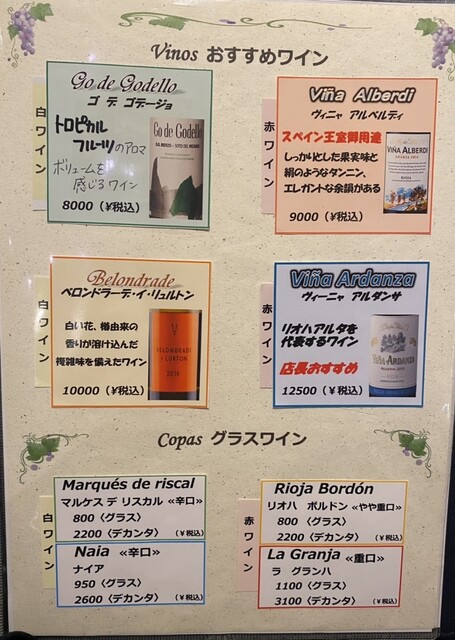 Vinos おすすめワイン
白ワイン
Go de Godello
ゴ デ ゴデージョ
トロピカル
フルーツのアロマ
ボリュームを
感じるワイン
8000（¥税込）
Go de Godello
赤ワイン
Viña Alberdi
ヴィニャ アルベルディ
スペイン王室御用達
しっかりとした果実味と
絹のようなタンニン、
エレガントな余韻がある
9000（¥税込）
VIÑA ALBERDI
RIOJA
白ワイン
Belondrade
ベロンドラーデ・イ・リュルトン
白い花、樽由来の
香りが溶け込んだ
複雑味を備えたワイン
10000（¥税込）
BELONDRADE
Y LURTON
2016
赤ワイン
Viña Ardanza
ヴィーニャ アルダンサ
リオハアルタを
代表するワイン
店長おすすめ
12500（¥税込）
VIÑA ARDANZA
Copas グラスワイン
白ワイン
Marqués de riscal
マルケス デ リスカル «辛口»
800〈グラス〉
2200〈デカンタ〉（¥税込）
Naia «辛口»
ナイア
950〈グラス〉
2600〈デカンタ〉（¥税込）
赤ワイン
Rioja Bordón
リオハ ボルドン «やや重口»
800〈グラス〉
2200〈デカンタ〉（¥税込）
La Granja «重口»
ラ グランハ
1100〈グラス〉
3100〈デカンタ〉（¥税込）